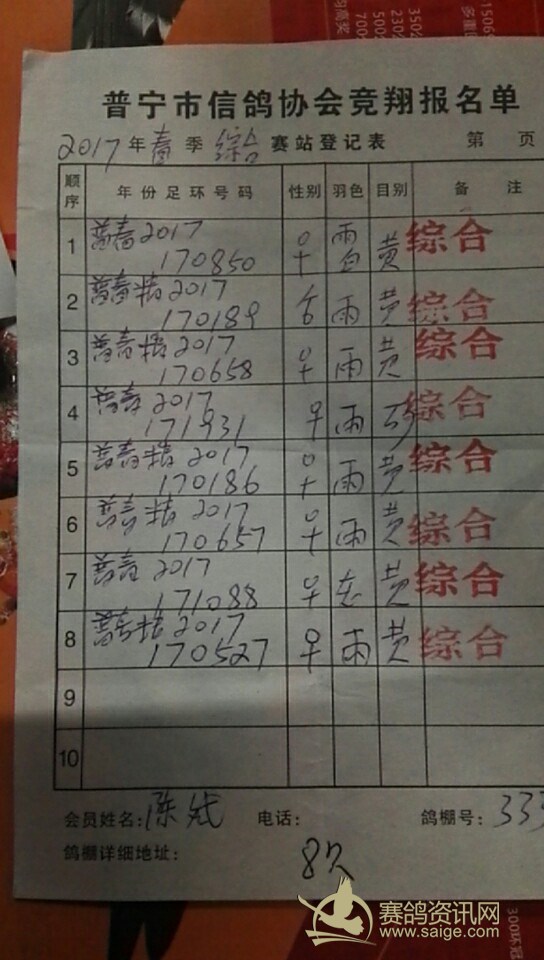 普宁市信鸽协会竞翔报名单
2017年春季综合赛站登记表 第 页
顺序 年份足环号码 性别 羽色 目别 备 注
1 普春2017 170850 ♀ 雨白 黄 综合
2 普春特2017 170189 雨 黄 综合
3 普春特2017 170658 ♀ 雨 黄 综合
4 普春2017 171931 ♀ 雨 砂 综合
5 普春特2017 170186 ♀ 雨 黄 综合
6 普春特2017 170657 ♀ 雨 黄 综合
7 普春2017 171088 ♀ 黄 综合
8 普春特2017 170527 ♀ 雨 黄 综合
9
10
会员姓名：陈 电话： 鸽棚号：333
鸽棚详细地址：
8只
赛鸽资讯网
www.saige.com
300环冠